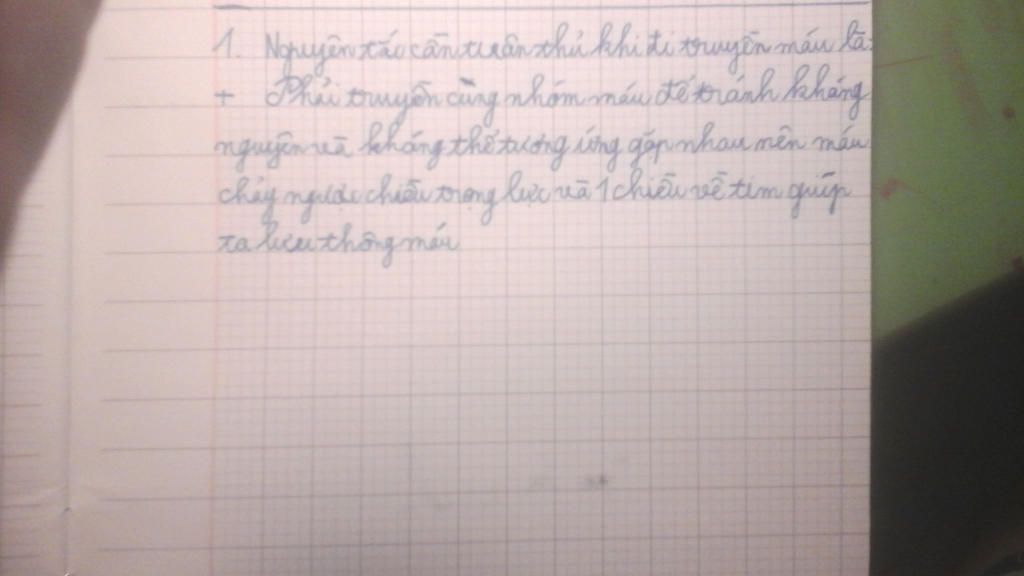 1. Nguyên tắc cần tuân thủ khi đi truyền máu là:
+ Phải truyền cùng nhóm máu để tránh kháng
nguyên và kháng thể tương ứng gặp nhau nên máu
chảy ngược chiều trọng lực và 1 chiều về tim giúp
ta lưu thông máu